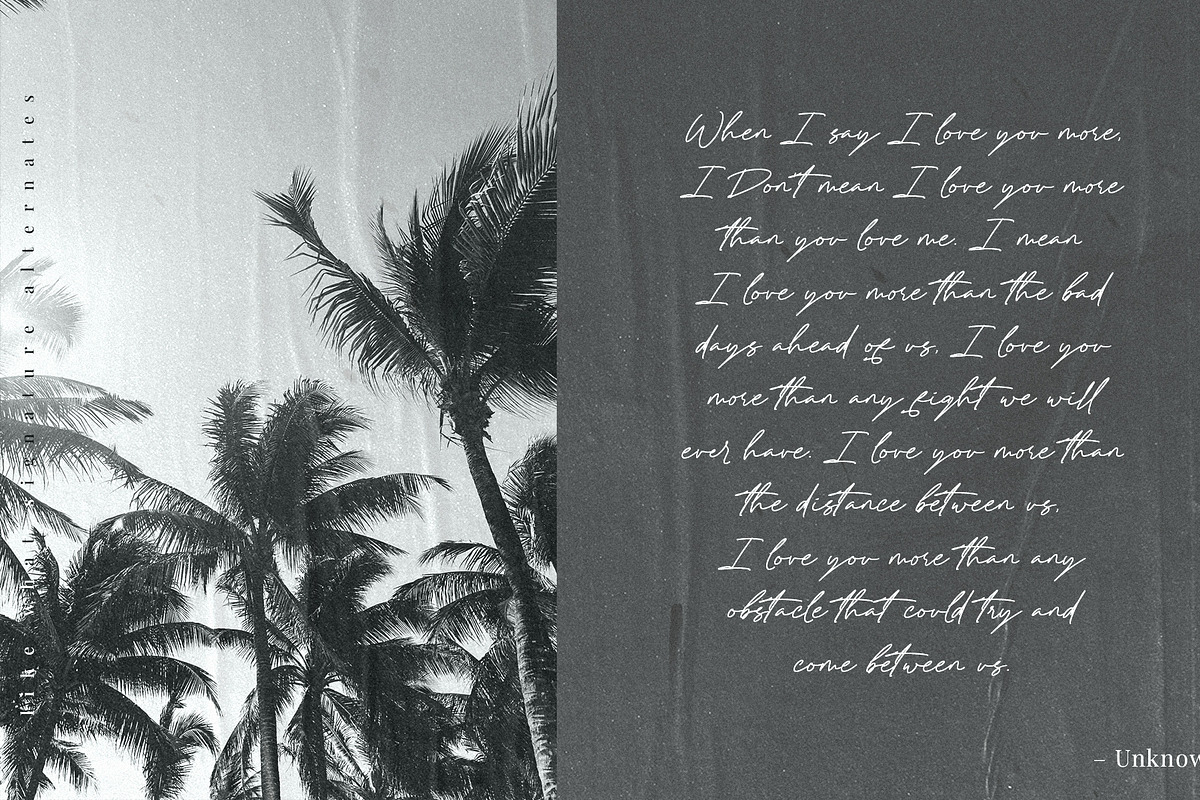 Like what signature alternates
When I say I love you more,
I Don't mean I love you more
than you love me. I mean
I love you more than the bad
days ahead of us, I love you
more than any fight we will
ever have. I love you more than
the distance between us,
I love you more than any
obstacle that could try and
come between us.
– Unknow